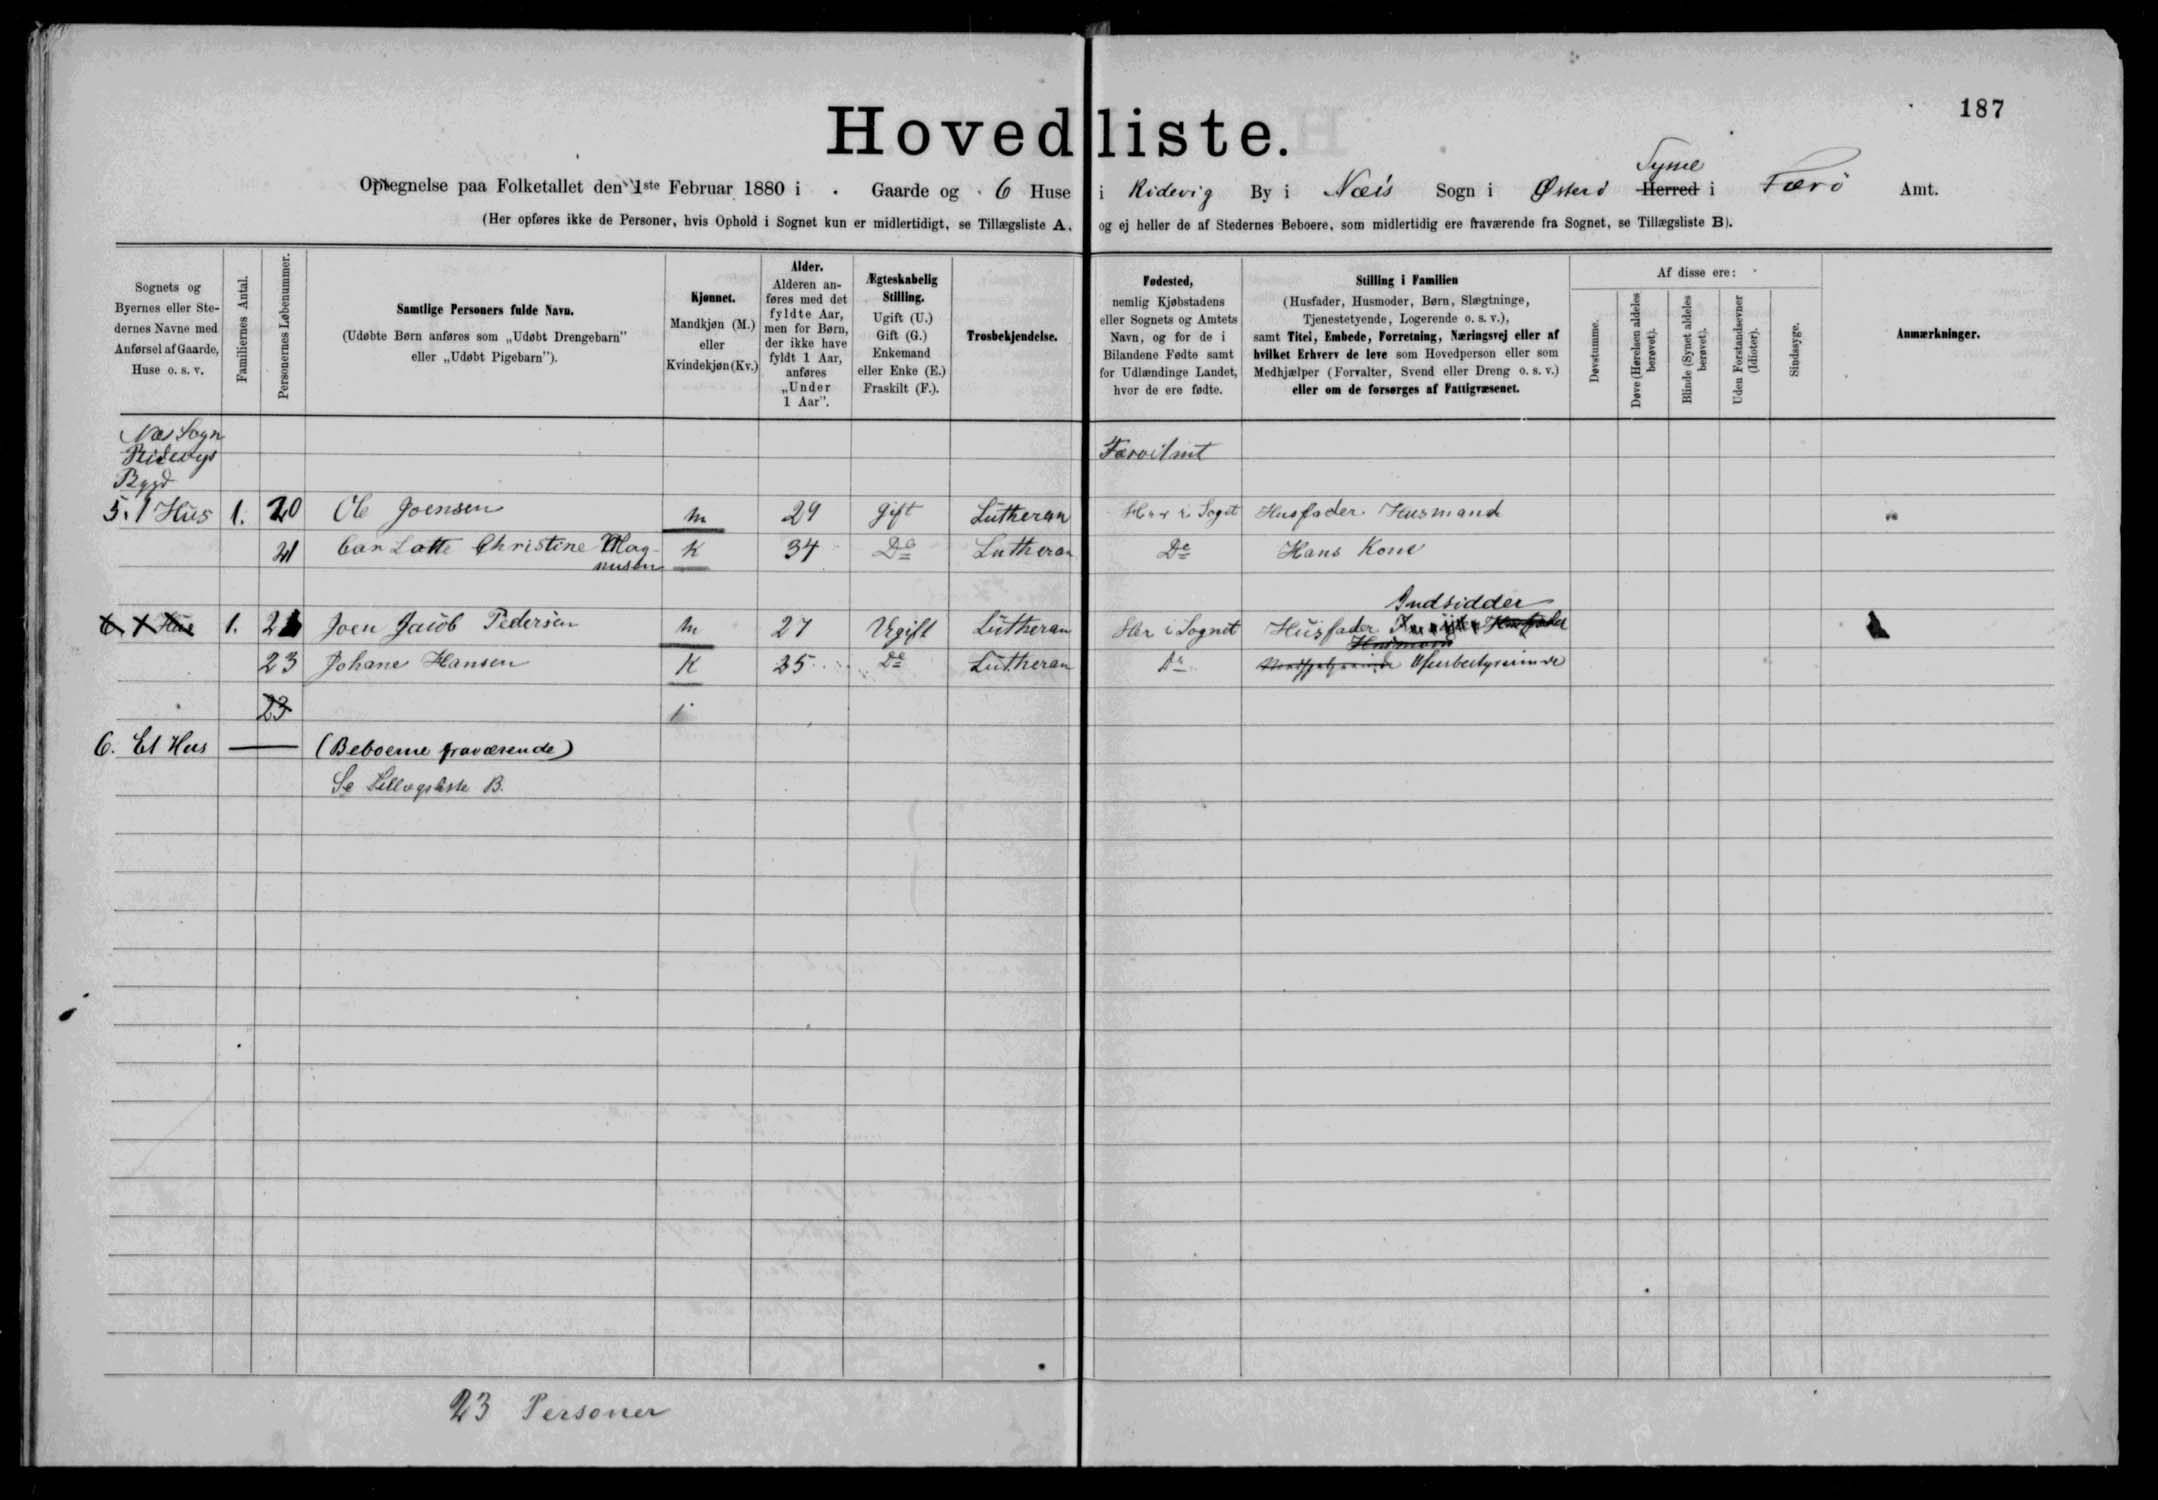 187
Hovedliste.
Optegnelse paa Folketallet den 1ste Februar 1880 i Gaarde og 6 Huse i Ridevig By i Næs Sogn i Østerö Herred Syssel i Færö Amt.
(Her opføres ikke de Personer, hvis Ophold i Sognet kun er midlertidigt, se Tillægsliste A, og ej heller de af Stedernes Beboere, som midlertidig ere fraværende fra Sognet, se Tillægsliste B).
Sognets og
Byernes eller Ste-
dernes Navne med
Anførsel af Gaarde,
Huse o. s. v.
Familiernes Antal.
Personernes Løbenummer.
Samtlige Personers fulde Navn.
(Udøbte Børn anføres som „Udøbt Drengebarn”
eller „Udøbt Pigebarn”).
Kjønnet.
Mandkjøn (M.)
eller
Kvindekjøn (Kv.)
Alder.
Alderen an-
føres med det
fyldte Aar,
men for Børn,
der ikke have
fyldt 1 Aar,
anføres
„Under
1 Aar”.
Ægteskabelig
Stilling.
Ugift (U.)
Gift (G.)
Enkemand
eller Enke (E.)
Fraskilt (F.).
Trosbekjendelse.
Fødested,
nemlig Kjøbstadens
eller Sognets og Amtets
Navn, og for de i
Bilandene Fødte samt
for Udlændinge Landet,
hvor de ere fødte.
Stilling i Familien
(Husfader, Husmoder, Børn, Slægtninge,
Tjenestetyende, Logerende o. s. v.),
samt Titel, Embede, Forretning, Næringsvej eller af
hvilket Erhverv de leve som Hovedperson eller som
Medhjælper (Forvalter, Svend eller Dreng o. s. v.)
eller om de forsørges af Fattigvæsenet.
Af disse ere:
Døvstumme.
Døve (Hørelsen aldeles
berøvet).
Blinde (Synet aldeles
berøvet).
Uden Forstandsevner
(Idioter).
Sindssyge.
Anmærkninger.
Næs Sogn
Ridevigs
Bygd
Færö Amt
5. 1 Hus 1. 20 Ole Joensen M 29 Gift Lutheran Her i Sognet Husfader. Husmand
21 Car Lotte Christine Mag- K 34 Do Lutheran Do Hans Kone
nusen
Indsidder
6. 1 Hus 1. 22 Joen Jacob Pedersen M 27 Ugift Lutheran Her i Sognet Husfader Husfader
Husmand
23 Johane Hansen K 25 Do Lutheran Do Husbestyrerinde
23
6. Et Hus — (Beboerne fraværende)
Se Tillægsliste B.
23 Personer